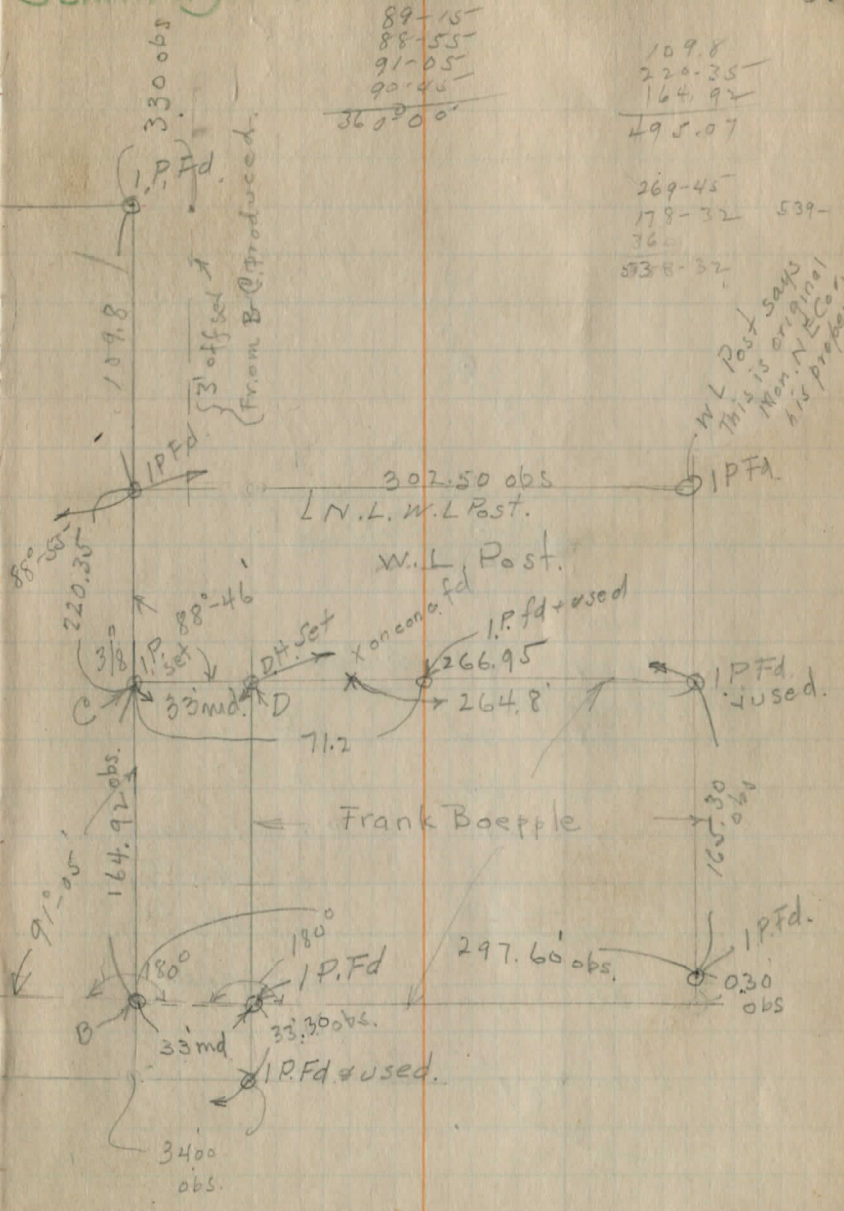 89-15
88-55
91-05
90-45
360°00'
109.8
220.35
164.92
495.07
269-45
178-32 539-
36
538-32
330 obs
I.P. Fd.
3' offset
From B C Produced.
109.8
W L Post says
This is original
Mon. N.E Cor.
his prope
I P Fd.
302.50 obs
I P Fd.
N.L. W.L Post.
88°-55'
220.35
W. L. Post.
88°-46'
I.P. Set
D.H. Set
X on conc. fd
I.P. fd & used
266.95
264.8'
I P Fd.
& used.
C
33' md.
D
71.2
164.92 obs.
Frank Boepple
165.30
obs
91°-05'
180°
180°
I P. Fd
297.60' obs.
I P. Fd.
0.30'
obs
B
33' md
33.30 obs.
I P. Fd & used.
34.00
obs.